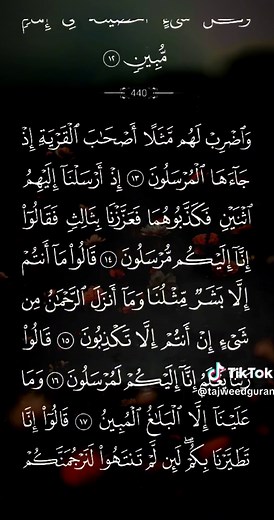 وَكُلَّ شَيْءٍ أَحْصَيْنَٰهُ فِىٓ إِمَامٍ
مُّبِينٍ ١٢
440
وَٱضْرِبْ لَهُم مَّثَلًا أَصْحَٰبَ ٱلْقَرْيَةِ إِذْ
جَآءَهَا ٱلْمُرْسَلُونَ ١٣ إِذْ أَرْسَلْنَآ إِلَيْهِمُ
ٱثْنَيْنِ فَكَذَّبُوهُمَا فَعَزَّزْنَا بِثَالِثٍ فَقَالُوٓا۟
إِنَّآ إِلَيْكُم مُّرْسَلُونَ ١٤ قَالُوا۟ مَآ أَنتُمْ
إِلَّا بَشَرٌ مِّثْلُنَا وَمَآ أَنزَلَ ٱلرَّحْمَٰنُ مِن
شَىْءٍ إِنْ أَنتُمْ إِلَّا تَكْذِبُونَ ١٥ قَالُوا۟
رَبُّنَا يَعْلَمُ إِنَّآ إِلَيْكُمْ لَمُرْسَلُونَ ١٦ وَمَا
عَلَيْنَآ إِلَّا ٱلْبَلَٰغُ ٱلْمُبِينُ ١٧ قَالُوٓا۟ إِنَّا
تَطَيَّرْنَا بِكُمْ ۖ لَئِن لَّمْ تَنتَهُوا۟ لَنَرْجُمَنَّكُمْ
TikTok
@tajweedguran